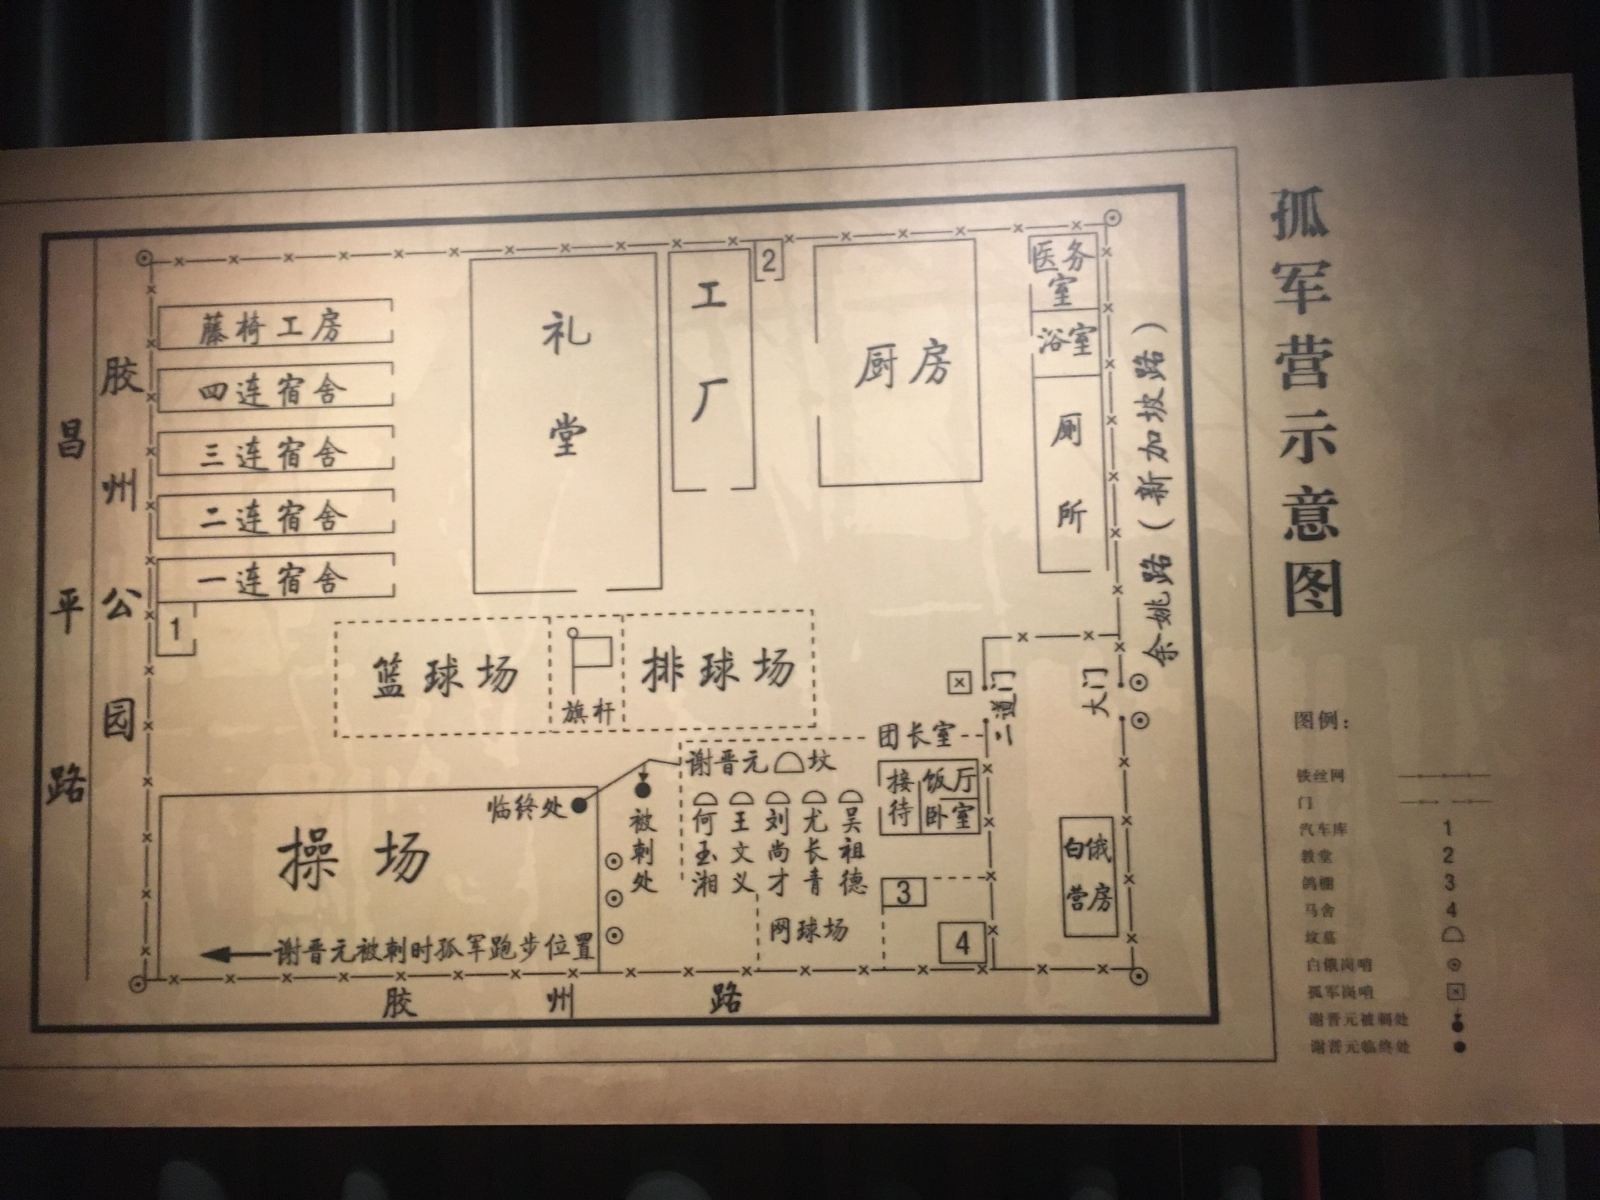 孤军营示意图
医务室
2
工厂
礼堂
藤椅工房
浴室
厨房
四连宿舍
胶州公园
昌平路
余姚路（新加坡路）
三连宿舍
厕所
二连宿舍
一连宿舍
1
篮球场
旗杆
排球场
二道门
大门
团长室
谢晋元
坟
临终处
被刺处
接待
饭厅
卧室
何玉湘
王文义
刘尚才
尤长青
吴祖德
操场
白俄营房
3
网球场
4
谢晋元被刺时孤军跑步位置
胶州路
图例：
铁丝网
门
汽车库 1
教堂 2
鸽棚 3
马舍 4
坟墓
白俄岗哨
孤军岗哨
谢晋元被刺处
谢晋元临终处